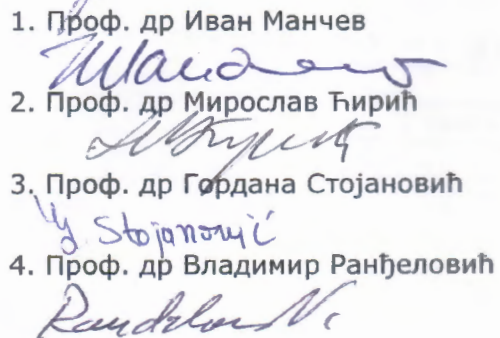 1. Проф. др Иван Манчев
2. Проф. др Мирослав Ћирић
3. Проф. др Гордана Стојановић
G. Stojanović
4. Проф. др Владимир Ранђеловић